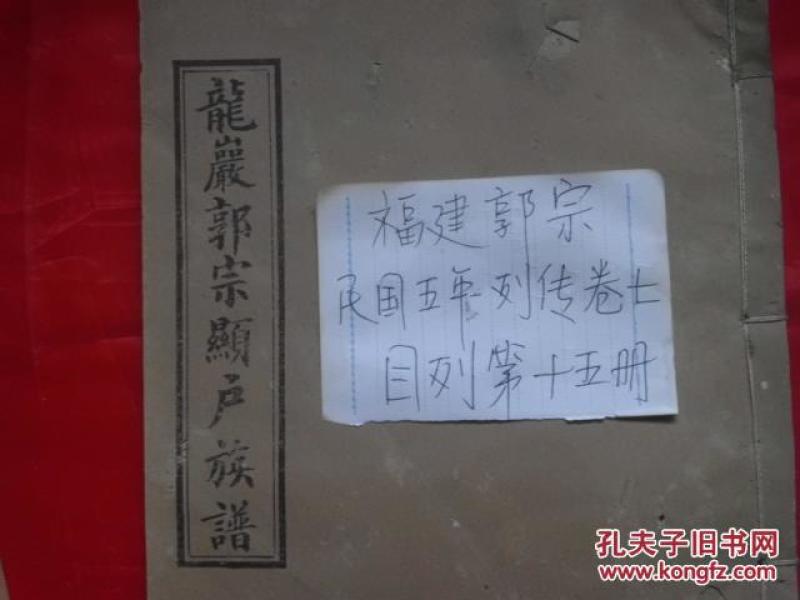 龍巖郭宗顯戶族譜
福建郭宗
民国五年列传卷七
目列第十五册
孔夫子旧书网
www.kongfz.com